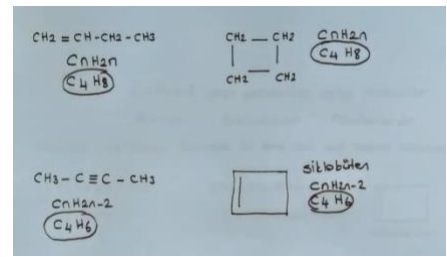 CH2 = CH-CH2-CH3
CnH2n
C4H8
CH2 — CH2
CH2 CH2
CnH2n
C4H8
CH3- C ≡ C - CH3
CnH2n-2
C4H6
siklobüten
CnH2n-2
C4H6